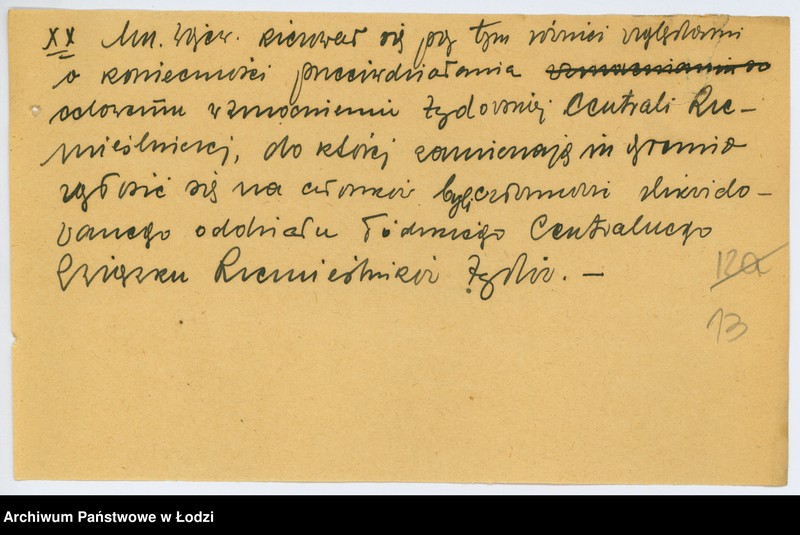 XX Min. Wojew. kierował się przy tym również względami
o konieczności przeciwdziałania
celowemu wzmocnieniu żydowskiej Centrali Rze-
mieślniczej, do której zamierzają in gremio
zgłosić się na członków byli członkowie zlikwido-
wanego oddziału łódzkiego Centralnego
Związku Rzemieślników Żydów. —
12a
13
Archiwum Państwowe w Łodzi